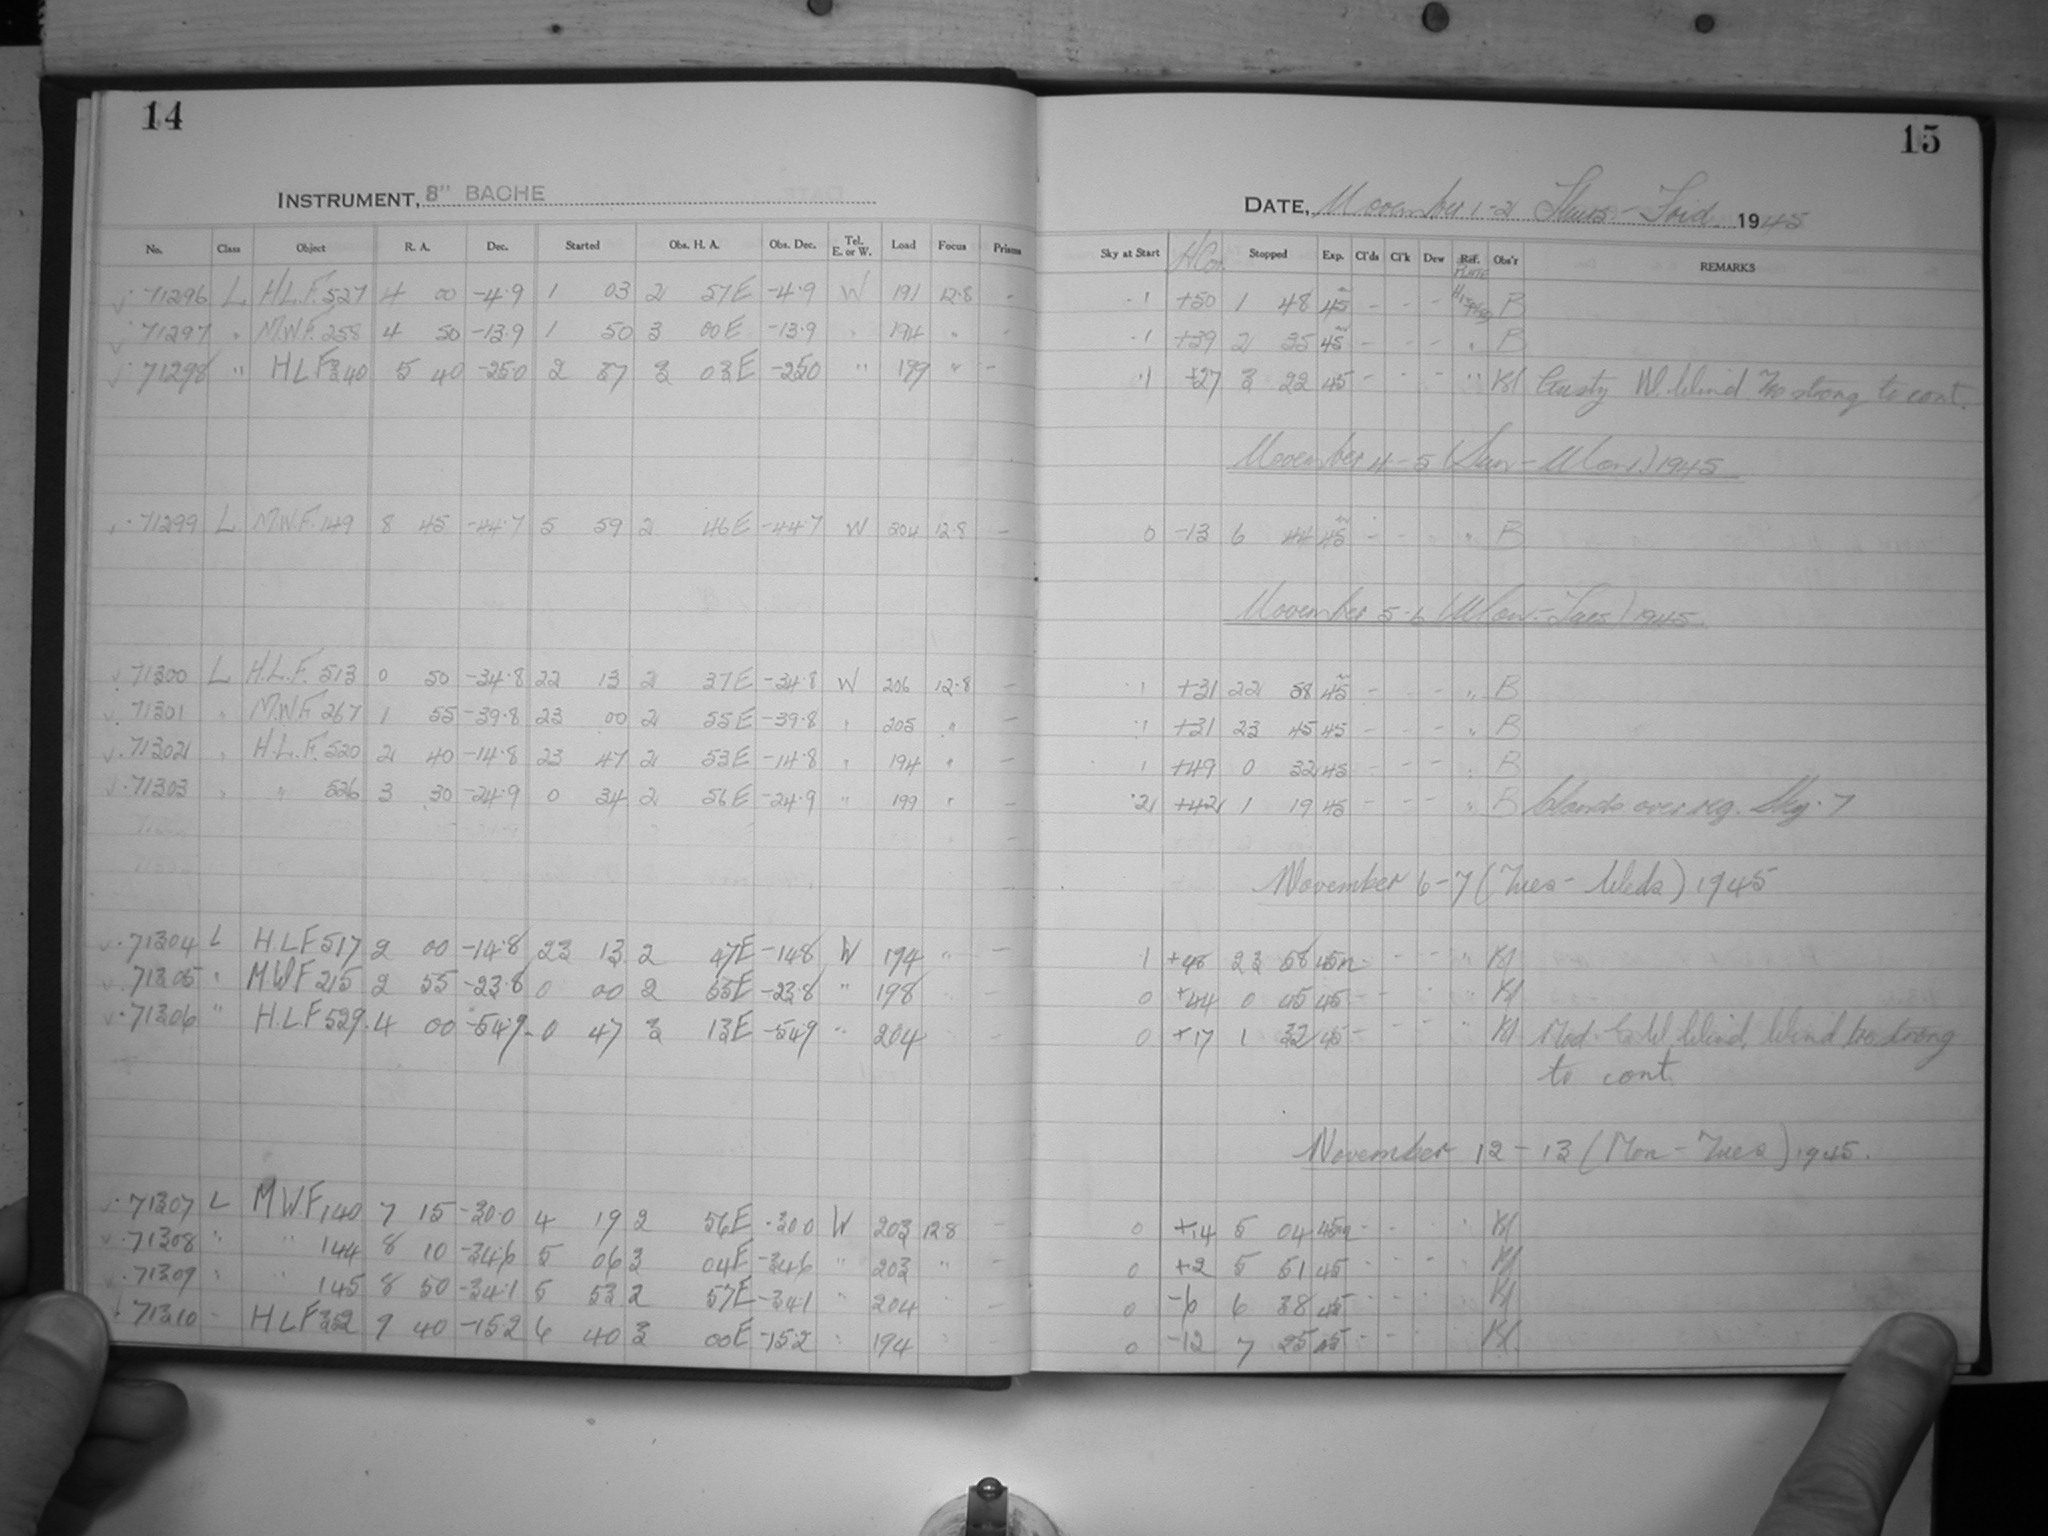 14
INSTRUMENT, 8" BACHE
No. Class Object R. A. Dec. Started Obs. H. A. Obs. Dec. Tel. E. or W. Load Focus Prisms
71296 L H.L.F. 527 4 00 -4.9 1 03 2 57E -4.9 W 191 12.8 -
71297 " M.W.F. 258 4 50 -13.9 1 50 3 00E -13.9 " 194 "
71298 " HLF 340 5 40 -25.0 2 37 3 03E -25.0 " 199 " -
71299 L M.W.F. 149 8 45 -44.7 5 59 2 46E -44.7 W 204 12.8 -
71300 L H.L.F. 513 0 50 -34.8 22 13 2 37E -34.8 W 206 12.8 -
71301 " M.W.F. 267 1 55 -39.8 23 00 2 55E -39.8 " 205 " -
71302 " H.L.F. 520 2 40 -14.8 23 47 2 53E -14.8 " 194 " -
71303 " " 536 3 30 -24.9 0 34 2 56E -24.9 " 199 " -
71304 L H.L.F 517 2 00 -14.8 23 13 2 47E -14.8 W 194 " -
71305 " MWF 215 2 55 -23.8 0 00 2 55E -23.8 " 198 -
71306 " H.L.F 529 4 00 -54.9 0 47 3 13E -54.9 " 204 -
71307 L M.W.F 140 7 15 -30.0 4 19 2 56E -30.0 W 203 12.8 -
71308 " " 144 8 10 -34.6 5 06 3 04E -34.6 " 203 " -
71309 " " 145 8 50 -34.1 5 53 2 57E -34.1 " 204 -
71310 - HLF 352 9 40 -15.2 6 40 3 00E -15.2 " 194 -
15
DATE, November 1-2 Thurs - Frid. 1945
Sky at Start Stopped Exp. Cl'ds Cl'k Dew Ref. PLATE Obs'r REMARKS
.1 +50 1 48 45 - - - B
.1 +39 2 35 45 - - - " B
.1 +27 3 22 45 - - - " Bl Gusty W. Wind. Too strong to cont.
November 4-5 (Sun - Mon.) 1945
0 -13 6 44 45 - - " B
November 5-6 (Mon - Tues) 1945.
.1 +31 22 58 45 - - - " B
.1 +31 23 45 45 - - - " B
.1 +49 0 32 45 - - - " B
.2 +42 1 19 45 - - - " B Clouds over reg. Sky .7
November 6-7 (Tues - Weds) 1945
1 +48 23 58 45m - - - " Bl
0 +44 0 45 45 - - - " Bl
0 +17 1 32 45 - - - " Bl Mod. Wind. Wind too strong
to cont.
November 12-13 (Mon - Tues) 1945.
0 +14 5 04 45m - - Bl
0 +2 5 51 45 - - - Bl
0 -6 6 38 45 - - - Bl
0 -12 7 25 45 - - - Bl.